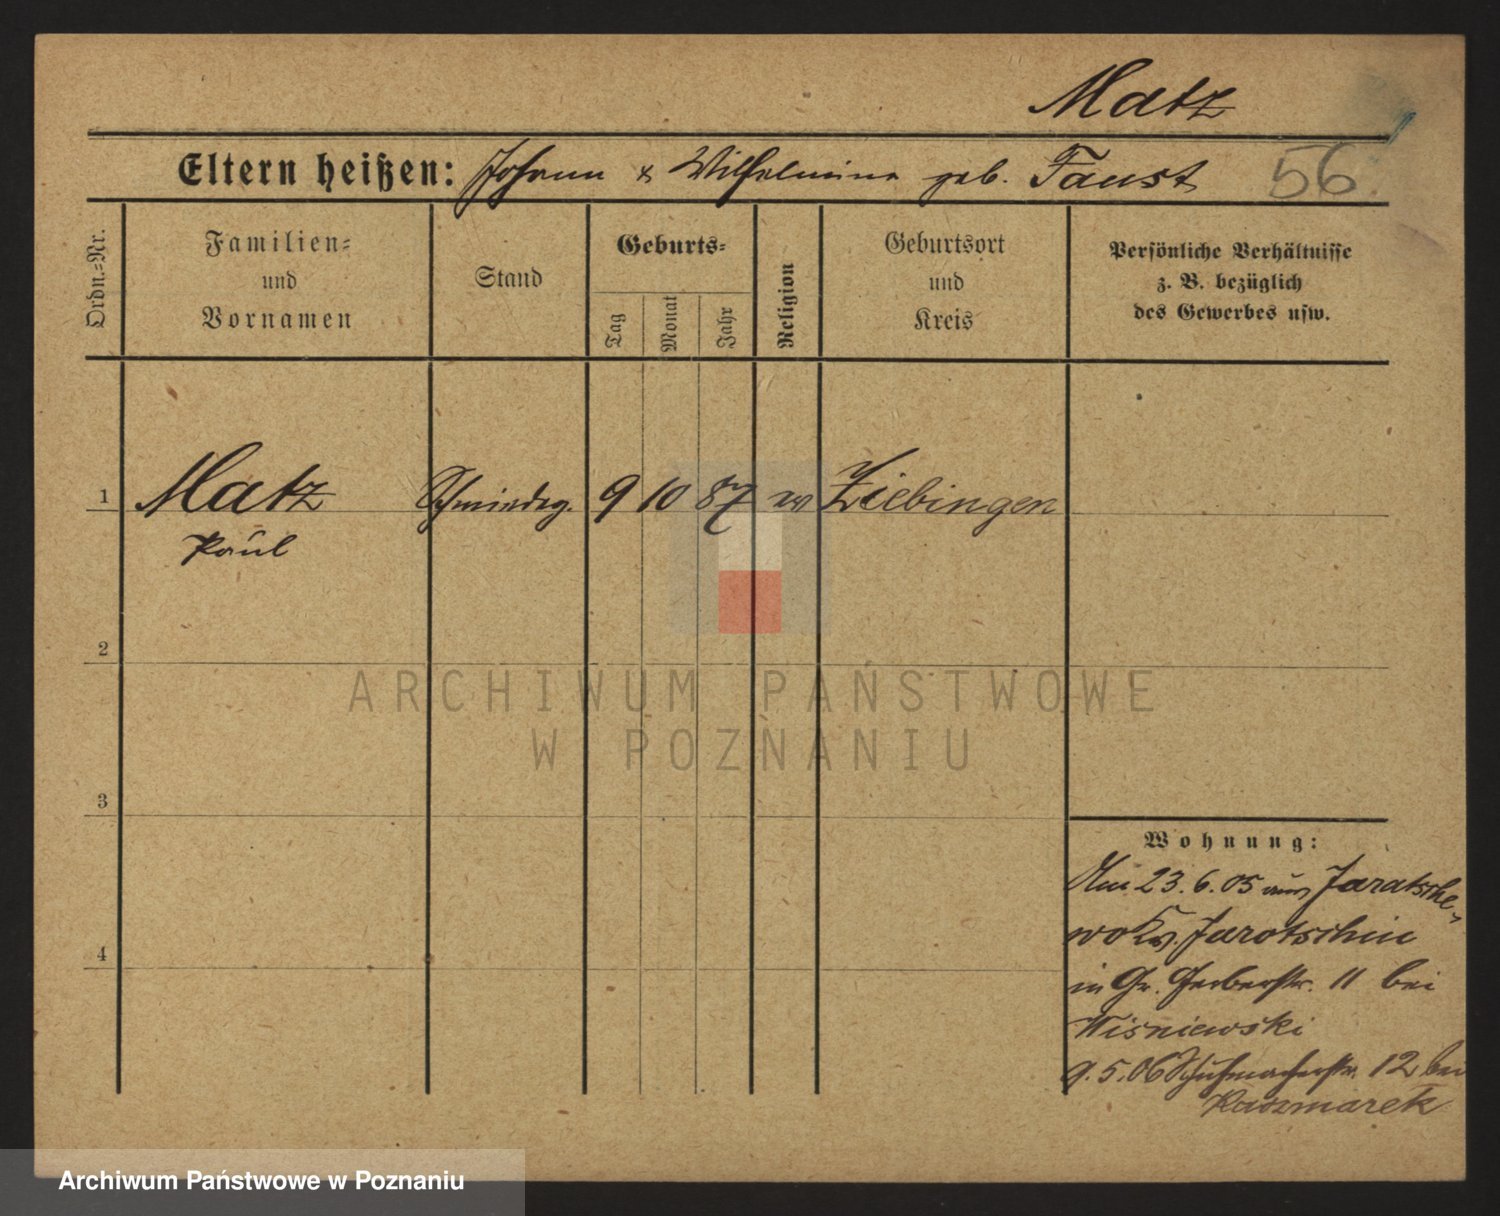 Matz
Eltern heißen: Johann & Wilhelmine geb. Faust 56
Ordn.-Nr.
Familien-
und
Vornamen
Stand
Geburts-
Tag
Monat
Jahr
Religion
Geburtsort
und
Kreis
Persönliche Verhältnisse
z. B. bezüglich
des Gewerbes usw.
1 Matz Schmiedeg. 9 10 87 ev Ziebingen
Paul
2
3
4
ARCHIWUM PAŃSTWOWE
W POZNANIU
Wohnung:
Am 23.6.05 aus Jaratsche-
wo Kr. Jarotschin
in Gr. Gerberstr. 11 bei
Wisniewski
9.5.06 Schuhmacherstr. 12 bei
Kaczmarek
Archiwum Państwowe w Poznaniu